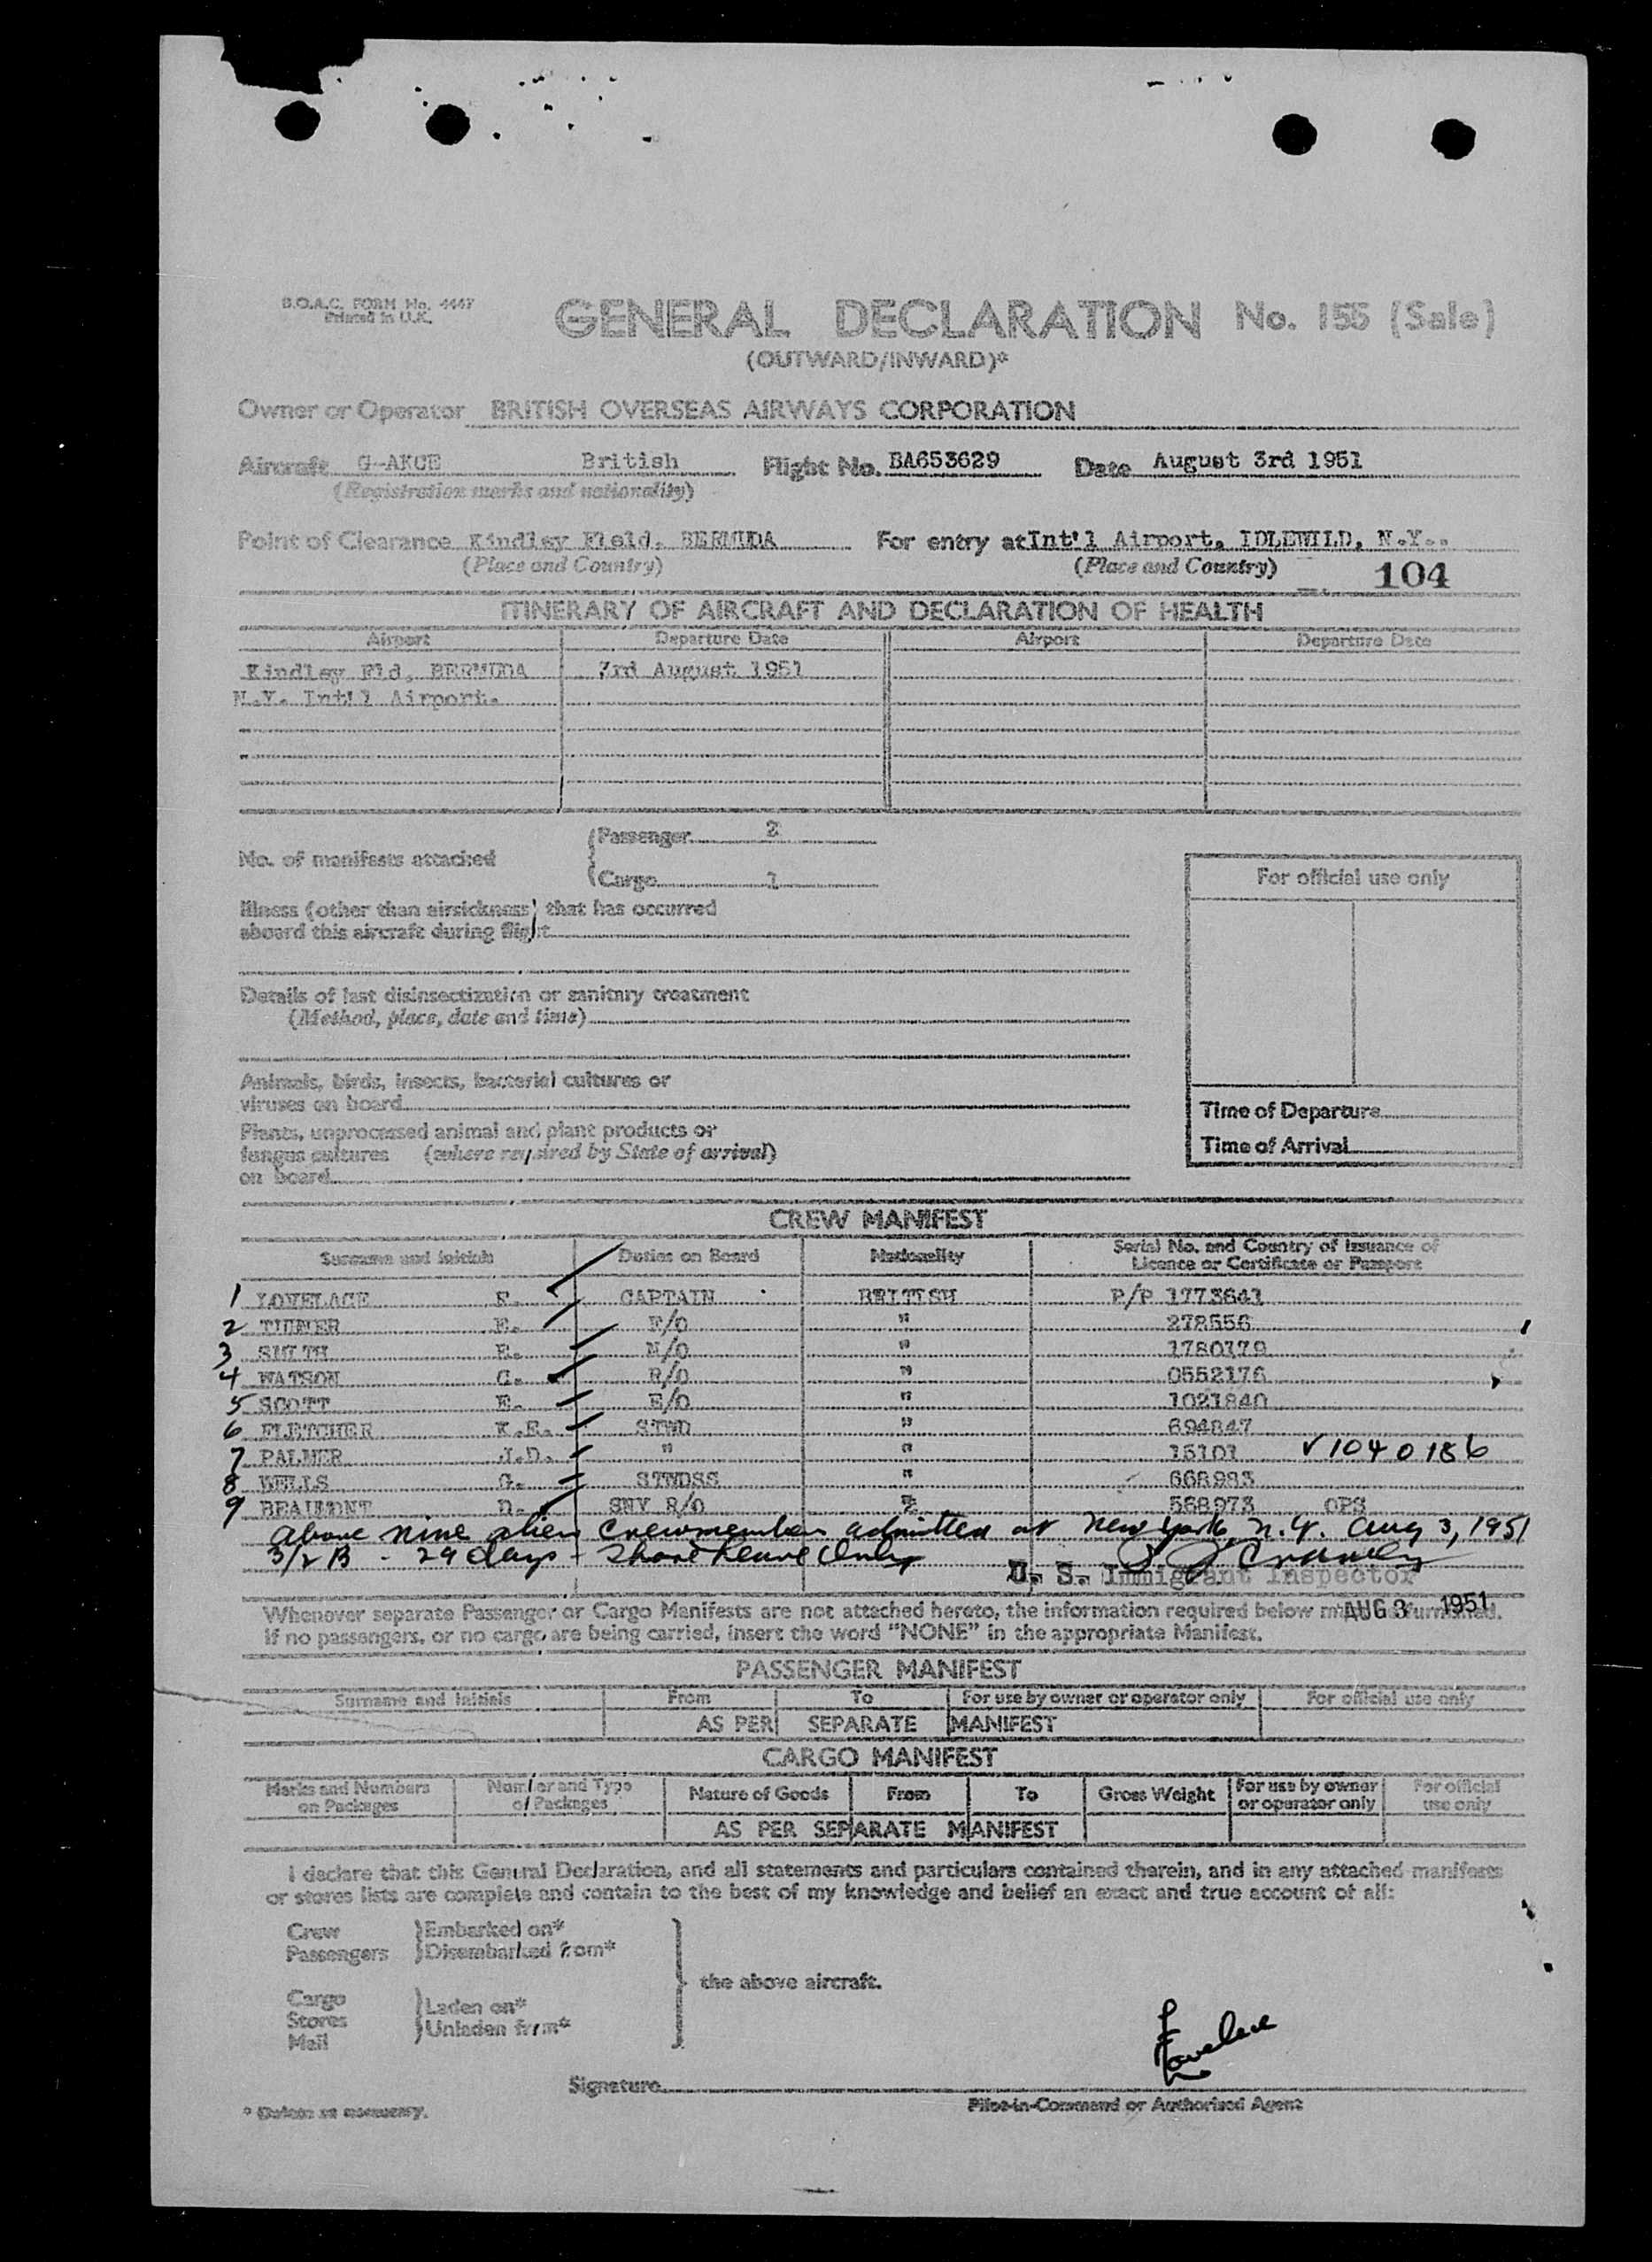 B.O.A.C. FORM No. 4447
Printed in U.K.
GENERAL DECLARATION No. 155 (Sale)
(OUTWARD/INWARD)*
Owner or Operator BRITISH OVERSEAS AIRWAYS CORPORATION
Aircraft G-AKCE British Flight No. BA653629 Date August 3rd 1951
(Registration marks and nationality)
Point of Clearance Kindley Field, BERMUDA For entry at Int'l Airport, IDLEWILD, N.Y..
(Place and Country) (Place and Country) 104
ITINERARY OF AIRCRAFT AND DECLARATION OF HEALTH
Airport Departure Date Airport Departure Date
Kindley Fld, BERMUDA 3rd August 1951
N.Y. Int'l Airport.
No. of manifests attached
Passenger 2
Cargo 1
For official use only
Illness (other than airsickness) that has occurred
aboard this aircraft during flight
Details of last disinsectization or sanitary treatment
(Method, place, date and time)
Animals, birds, insects, bacterial cultures or
viruses on board
Time of Departure
Plants, unprocessed animal and plant products or
fungus cultures (where required by State of arrival)
on board
Time of Arrival
CREW MANIFEST
Surname and Initials Duties on Board Nationality Serial No. and Country of Issuance of
Licence or Certificate or Passport
1 LOVELACE F. CAPTAIN BRITISH P/P 1773641
2 TURNER E. F/O " 278556
3 SMITH R. N/O " 1780179
4 WATSON G. R/O " 0552176
5 SCOTT E. E/O " 1021840
6 FLETCHER K.E. STWD " 694847
7 PALMER J.D. " " 15101 √ 1040186
8 WELLS G. STWDSS " 668983
9 BEAUMONT D. SNY R/O " 568973 OPS
above nine alien crewmember admitted at New York, N.Y. Aug 3, 1951
3/2 B - 29 days - Shore Leave Only
U. S. Immigrant Inspector
AUG 3 1951
Whenever separate Passenger or Cargo Manifests are not attached hereto, the information required below must be furnished.
If no passengers, or no cargo are being carried, insert the word "NONE" in the appropriate Manifest.
PASSENGER MANIFEST
Surname and Initials From To For use by owner or operator only For official use only
AS PER SEPARATE MANIFEST
CARGO MANIFEST
Marks and Numbers on Packages Number and Type of Packages Nature of Goods From To Gross Weight For use by owner or operator only For official use only
AS PER SEPARATE MANIFEST
I declare that this General Declaration, and all statements and particulars contained therein, and in any attached manifests
or stores lists are complete and contain to the best of my knowledge and belief an exact and true account of all:
Crew Embarked on*
Passengers Disembarked from*
the above aircraft.
Cargo Laden on*
Stores Unladen from*
Mail
F Lovelace
Signature
Pilot-in-Command or Authorised Agent
* Delete as necessary.